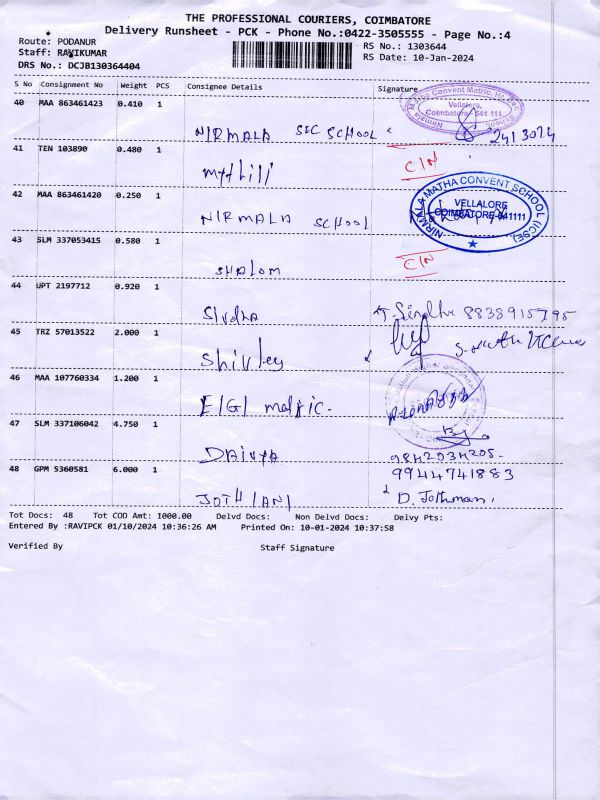 THE PROFESSIONAL COURIERS, COIMBATORE
Delivery Runsheet - PCK - Phone No.:0422-3505555 - Page No.:4
Route: PODANUR
Staff: RAVIKUMAR
DRS No.: DCJB130364404
RS No.: 1303644
RS Date: 10-Jan-2024
S No Consignment No Weight PCS Consignee Details Signature
40 MAA 863461423 0.410 1
NIRMALA SEC SCHOOL
Vellalore,
Coimbatore- 641 111
2413024
41 TEN 103890 0.480 1
Mythili
C/N
42 MAA 863461420 0.250 1
NIRMALA SCHOOL
NIRMALA MATHA CONVENT SCHOOL (ICSE)
VELLALORE
COIMBATORE-641111
43 SLM 337053415 0.580 1
SHALOM
C/N
44 UPT 2197712 0.920 1
Sindha 8838915795
45 TRZ 57013522 2.000 1
Shivley
46 MAA 107760334 1.200 1
E/G/ matric.
47 SLM 337106042 4.750 1
DAIVYA
9842034205
48 GPM 5360581 6.000 1
9944741883
JOTHIANI
Tot Docs: 48 Tot COD Amt: 1000.00 Delvd Docs: Non Delvd Docs: Delvy Pts:
Entered By :RAVIPCK 01/10/2024 10:36:26 AM Printed On: 10-01-2024 10:37:58
Verified By Staff Signature